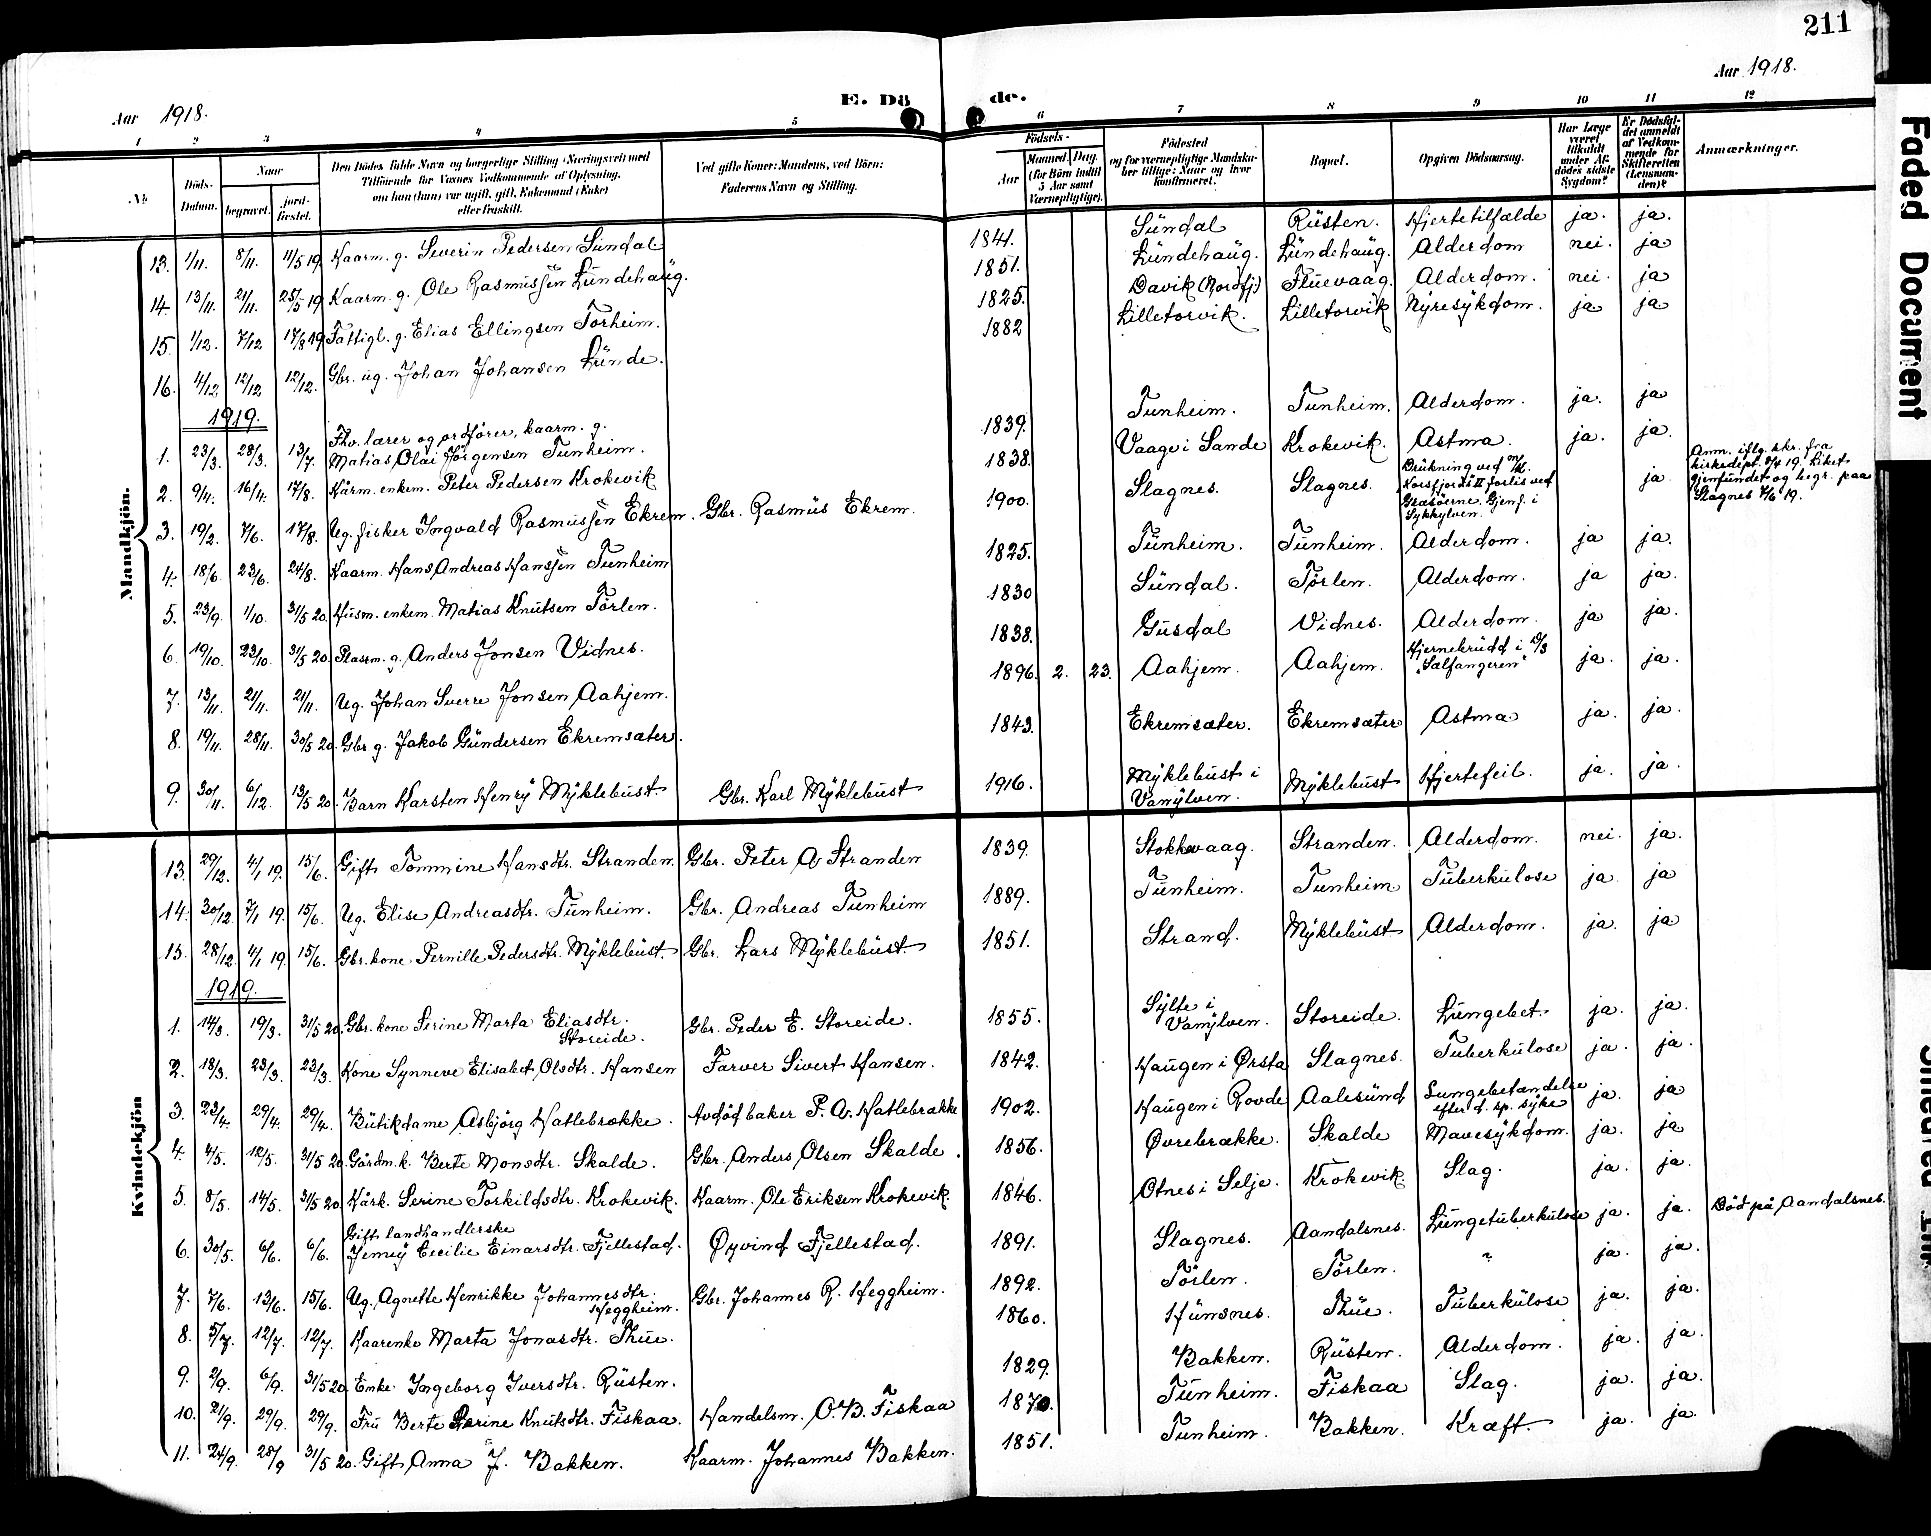 211
Aar 1918.
E. Dö de.
Aar 1918.
1 2 3 4 5 6 7 8 9 10 11 12
No.
Döds-Datum.
Naar
begravet.
jord-fæstet.
Den Dödes fulde Navn og borgerlige Stilling (Næringsvei) med
Tilföiende for Voxnes Vedkommende af Oplysning,
om han (hun) var ugift, gift, Enkemand (Enke)
eller fraskilt.
Ved gifte Koner: Mandens, ved Börn:
Faderens Navn og Stilling.
Födsels-
Aar
Maaned. Dag.
(for Börn indtil
5 Aar samt
Værnepligtige).
Födested
og for værnepligtige Mandska-
ber tillige: Naar og hvor
konfirmeret.
Bopæl.
Opgiven Dödsaarsag.
Har Læge
været
tilkaldt
under Af-
dödes sidste
Sygdom?
Er Dödsfal-
det anmeldt
af Vedkom-
mende for
Skifteretten
(Lensman-
den)?
Anmærkninger.
Mandkjön.
13. 1/11. 8/11. 11/5 19. Kaarm. g. Severin Pedersen Sundal 1841. Sundal Rüsten. Hjertetilfælde ja. ja.
14. 13/11. 21/11. 25/5 19 Kaarm. g. Ole Rasmussen Lundehaug. 1851. Lundehaug. Lundehaug. Alderdom nei. ja
15. 1/12. 7/12 17/8 19 Fattigl. g. Elias Ellingsen Torheim. 1825. Davik (Nordfj.) Fluevaag. Alderdom. nei. ja
16. 4/12 12/12 12/12. Gbr. ug. Johan Johansen Lunde. 1882 Lilletorvik. Lilletorvik Nyresykdom. ja ja
1919.
1. 23/3. 28/3. 13/7. Fhv. lærer og ordfører, kaarm. g.
Matias Olai Jørgensen Tunheim. 1839. Tunheim. Tunheim. Alderdom. ja. ja
2. 9/4. 16/4. 17/8. Kårm. enkem. Peter Pedersen Krokevik 1838. Vaage i Sande Krokevik. Astma. ja. ja.
3. 19/2. 7/6. 17/8. Ug. fisker Ingvald Rasmussen Ekrem. Gbr. Rasmus Ekrem. 1900. Slagnes. Slagnes. Drukning ved
Korsfjord II forlis ved
Græsøerne. Gjenf. i
Sykkylven. ja Anm. iflg. skr. fra
kirkedept. 8/4 19. Liket
gjenfundet og begr. paa
Slagnes 7/6 19.
4. 18/6. 23/6. 24/8. Kaarm. Hans Andreas Hanssen Tunheim 1825. Tunheim. Tunheim. Alderdom. ja ja.
5. 23/9. 1/10. 31/5 20. Husm. enkem. Matias Knutsen Tørlen. 1830 Sundal. Tørlen. Alderdom. ja ja.
6. 19/10. 23/10. 31/5 20. Plassm. g. Anders Jonsen Vidnes. 1838. Gusdal Vidnes. Alderdom. ja ja.
7. 13/11. 21/11. 21/11. Ug. Johan Sverre Jonsen Aahjem. 1896. 2. 23. Aahjem. Aahjem. Hjernebrudd i
"Sælfangeren" ja. ja.
8. 19/11. 28/11. 30/5 20. Gbr g. Jakob Gundersen Ekremsæter. 1843. Ekremsæter. Ekremsæter Astma ja. ja.
9. 30/11. 6/12. 13/5 20. Barn Karsten Henry Myklebust. Gbr. Karl Myklebust 1916. Myklebust i
Vanylven. Myklebust Hjertefeil. ja. ja.
Kvindekjön
13. 29/12. 4/1 19. 15/6. Gift Tommine Hansdtr. Stranden. Gbr. Peter A Stranden 1839. Stokkevaag. Stranden. Alderdom. nei. ja.
14. 30/12 7/1 19. 15/6. Ug. Elise Andreasdtr. Tunheim. Gbr. Andreas Tunheim 1889. Tunheim. Tunheim Tuberkulose ja ja
15. 28/12 4/1 19. 15/6. Gbr. kone Pernille Pedersdtr. Myklebust. Gbr. Lars Myklebust. 1851. Strand. Myklebust Alderdom. ja. ja
1919.
1. 14/3. 19/3. 31/5 20. Gbr. kone Serine Marta Eliasdtr.
Storeide. Gbr. Peder E. Storeide. 1855. Sylte i
Vanylven. Storeide. Lungebet. ja. ja.
2. 18/3. 23/3. 23/3. Kone Synneve Elisabet Olsdtr. Hansen Farver Sivert Hansen. 1842. Haugen i Ørsta Slagnes. Tuberkulose ja. ja.
3. 23/4. 29/4. 29/4. Butikdame Asbjörg Hatlebrække. Avdød baker P. A. Hatlebrække 1902. Haugen i Rovde Aalesund Lungebetændelse
efter d. sp. syke ja. ja
4. 4/5. 12/5. 31/5 20. Gårdm.k. Berte Monsdtr. Skalde. Gbr. Anders Olsen Skalde. 1856. Øvrebrække. Skalde Mavesykdom. ja. ja
5. 8/5. 14/5. 31/5 20. Kårk. Serine Torkildsdtr. Krokevik. Kaarm. Ole Eriksen Krokevik. 1846. Otnes i Selje. Krokevik. Slag. ja. ja.
6. 30/5. 6/6. 6/6. Gift landhandlerske
Jenny Cecilie Einarsdtr. Fjellestad. Øyvind Fjellestad. 1891. Slagnes. Aandalsnes. Lungetuberkulose ja. ja. Död på Aandalsnes.
7. 7/6. 13/6. 15/6. Ug. Agnette Henrikke Johannesdtr.
Heggheim. Gbr. Johannes R. Heggheim. 1892. Tørlen. Tørlen. " ja. ja.
8. 5/7. 12/7. 12/7. Kaarenke Marta Jonasdtr. Thue. 1860. Humsnes. Thue. Tuberkulose ja. ja.
9. 2/9. 6/9. 31/5 20. Enke Ingeborg Iversdtr. Rusten. 1829. Bakken. Rusten. Alderdom. ja. ja.
10. 21/9. 29/9. 29/9. Fru Berte Serine Knutsdtr. Fiskaa. Handelsm. O. B. Fiskaa 1870. Tunheim. Fiskaa Slag. ja. ja.
11. 24/9. 28/9 31/5 20. Gift Anna J. Bakken. Kaarm. Johannes Bakken. 1851. Tunheim. Bakken. Kræft. ja. ja.
Faded Document